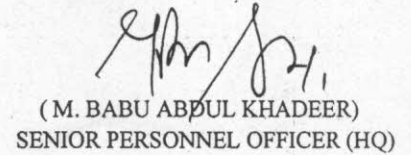 ( M. BABU ABDUL KHADEER)
SENIOR PERSONNEL OFFICER (HQ)